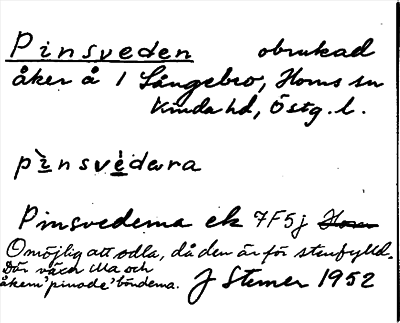 Pinsveden obrukad
åker å 1 Långebro, Horns sn
Kinda hd, Östg. l.
pìnsvèdara
Pinsvedema ek 7F5j
Omöjlig att odla, då den är för stenfylld.
Där växer illa och
åkern "pinade" bönderna. J Stemer 1952